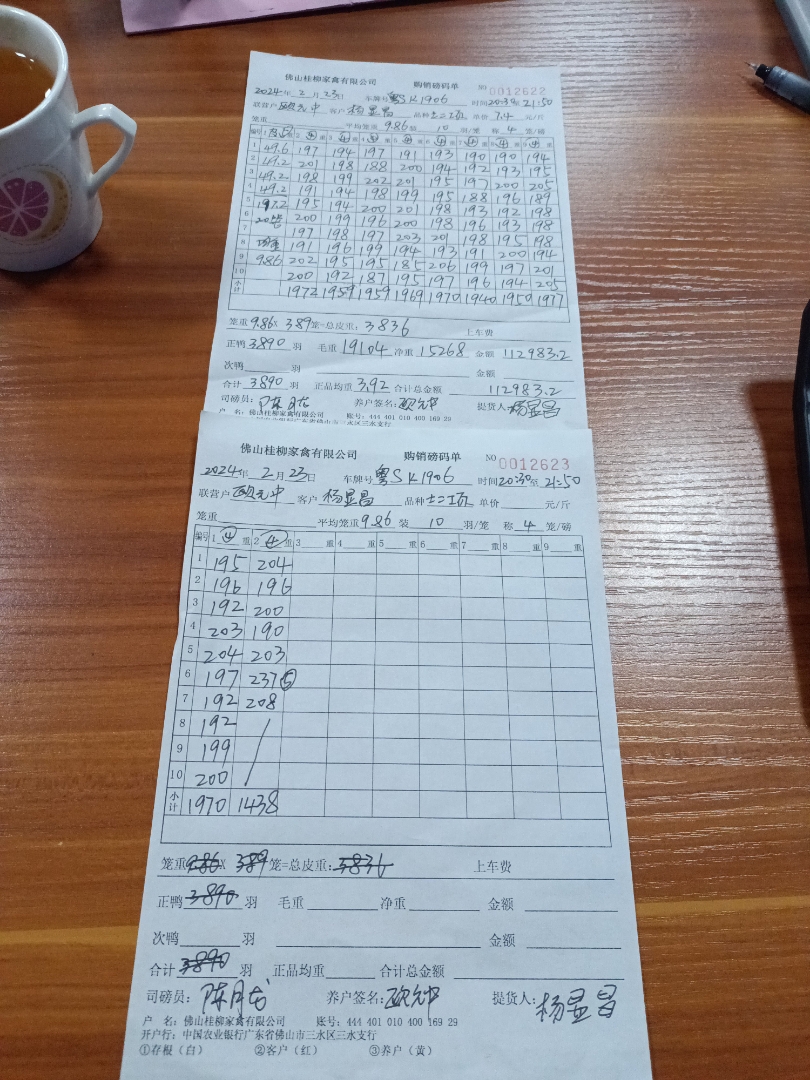 佛山桂柳家禽有限公司 购销磅码单 NO 0012622
2024年 2 月 23日 车牌号 粤SK1906 时间20:30至 21:50
联营户 客户 杨显昌 品种 单价 7.4 元/斤
笼重 平均笼重 9.86 装 10 羽/笼 称 4 笼/磅
编号 1 重 2 ④ 重 3 ④ 重 4 ④ 重 5 ④ 重 6 ④ 重 7 ④ 重 8 ④ 重 9 ④ 重
1 49.6 197 194 197 191 193 190 190 194
2 49.2 201 198 188 200 194 192 193 195
3 49.2 198 199 202 201 195 197 200 205
4 49.2 191 194 198 199 195 188 196 189
5 197.2 195 194 200 201 198 193 192 198
6 200 199 196 200 198 196 193 198
7 197 198 197 203 201 198 195 198
8 191 196 199 194 193 191 200 194
9 9.86 202 195 195 185 206 199 197 201
10 200 192 187 195 197 196 194 205
小计 1972 1959 1959 1969 1970 1940 1950 1977
笼重 9.86 X 389 笼=总皮重: 3836 上车费
正鸭 3890 羽 毛重 19104 净重 15268 金额 112983.2
次鸭 羽 金额
合计 3890 羽 正品均重 3.92 合计总金额 112983.2
司磅员: 陈月龙 养户签名: 提货人: 杨显昌
户 名: 佛山桂柳家禽有限公司 账号: 444 401 010 400 169 29
佛山桂柳家禽有限公司 购销磅码单 NO 0012623
2024年 2 月 23日 车牌号 粤SK1906 时间20:30至 21:50
联营户 客户 杨显昌 品种 单价 元/斤
笼重 平均笼重 9.86 装 10 羽/笼 称 4 笼/磅
编号 1 ④ 重 2 ④ 重 3 重 4 重 5 重 6 重 7 重 8 重 9 重
1 195 204
2 196 196
3 192 200
4 203 190
5 204 203
6 197 237⑤
7 192 208
8 192 /
9 199
10 200
小计 1970 1438
笼重 9.86 X 389 笼=总皮重: 3836 上车费
正鸭 3890 羽 毛重 净重 金额
次鸭 羽 金额
合计 3890 羽 正品均重 合计总金额
司磅员: 陈月龙 养户签名: 提货人: 杨显昌
户 名: 佛山桂柳家禽有限公司 账号: 444 401 010 400 169 29
开户行: 中国农业银行广东省佛山市三水区三水支行
①存根（白） ②客户（红） ③养户（黄）